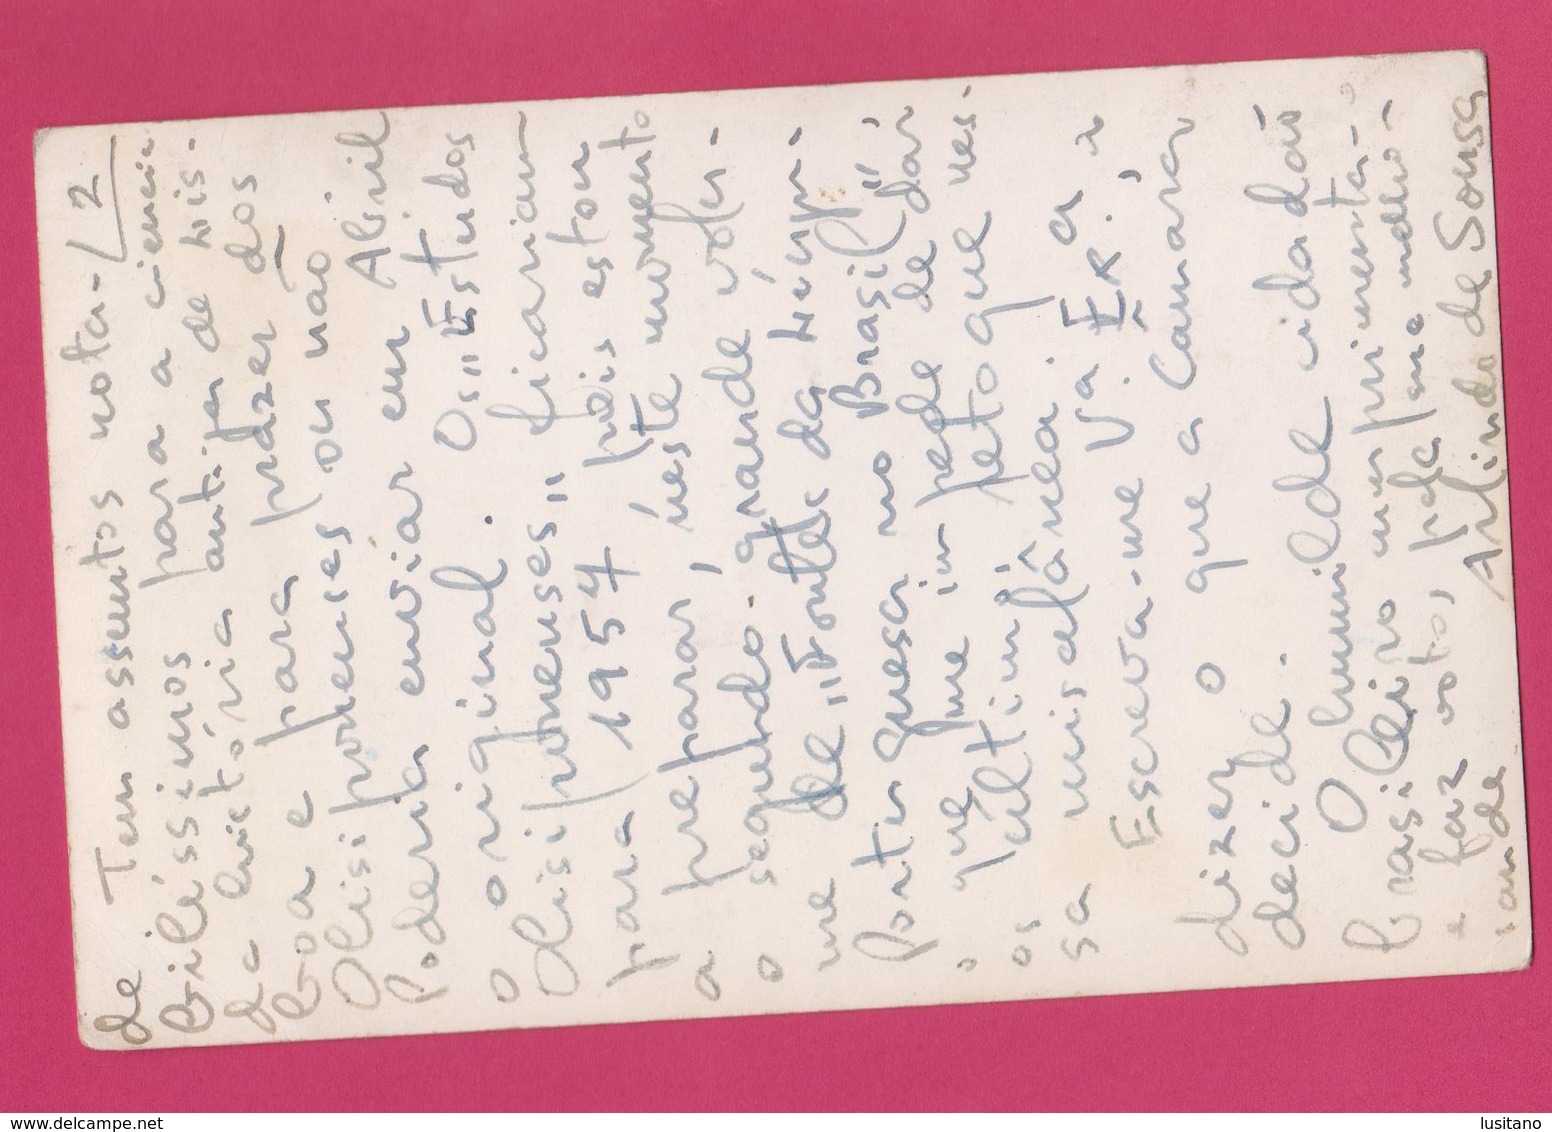 2
de Tem assuntos nota-
bilíssimos para a ciencia
da história antiga de Lis-
boa e para prazer dos
Olisiponenses ou não
Poderia enviar em Abril
o original. Os „Estudos
Olisiponenses" ficariam
para 1957 pois estou
a preparar, neste momento
o segundo grande volu-
me de „Fontes da Língua
Portuguesa no Brasil",
que me impede de dar
os últimos que nes-
sa miscelânea.
Escreva-me V. a Ex. a,
dizer o que a Camara
decide.
O humilde cidadão
brasileiro cumprimenta-
e faz votos, pela sua melhor
saude
Arlindo de Sousa
www.delcampe.net
lusitano